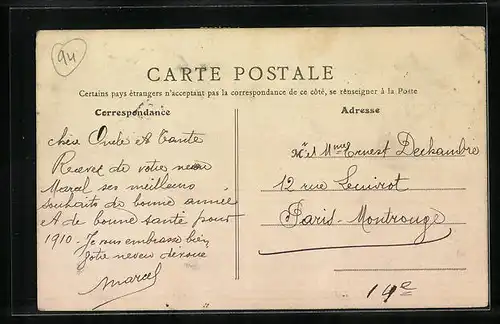 94
CARTE POSTALE
Certains pays étrangers n'acceptant pas la correspondance de ce côté, se renseigner à la Poste
Correspondance
Adresse
chère Oncle et Tante
Recevez de votre neveu
Marcel ses meilleurs
souhaits de bonne année
et de bonne santé pour
1910 - Je vous embrasse bien
Votre neveu dévoué
Marcel
Mr et Mme Ernest Dechambre
12 rue
Paris-Montrouge
14e